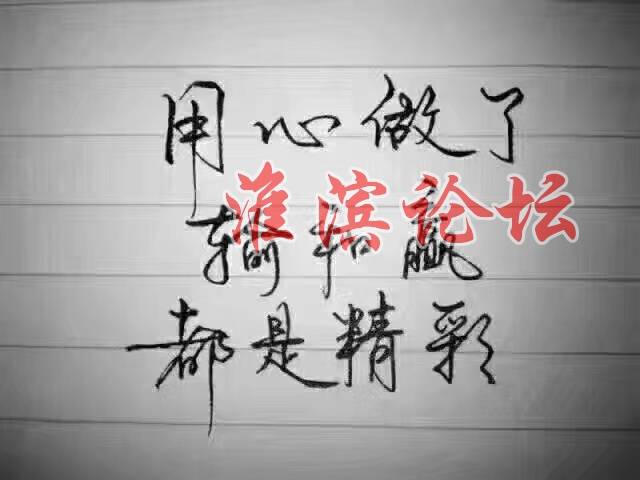 用心做了
淮滨论坛
输和赢
都是精彩